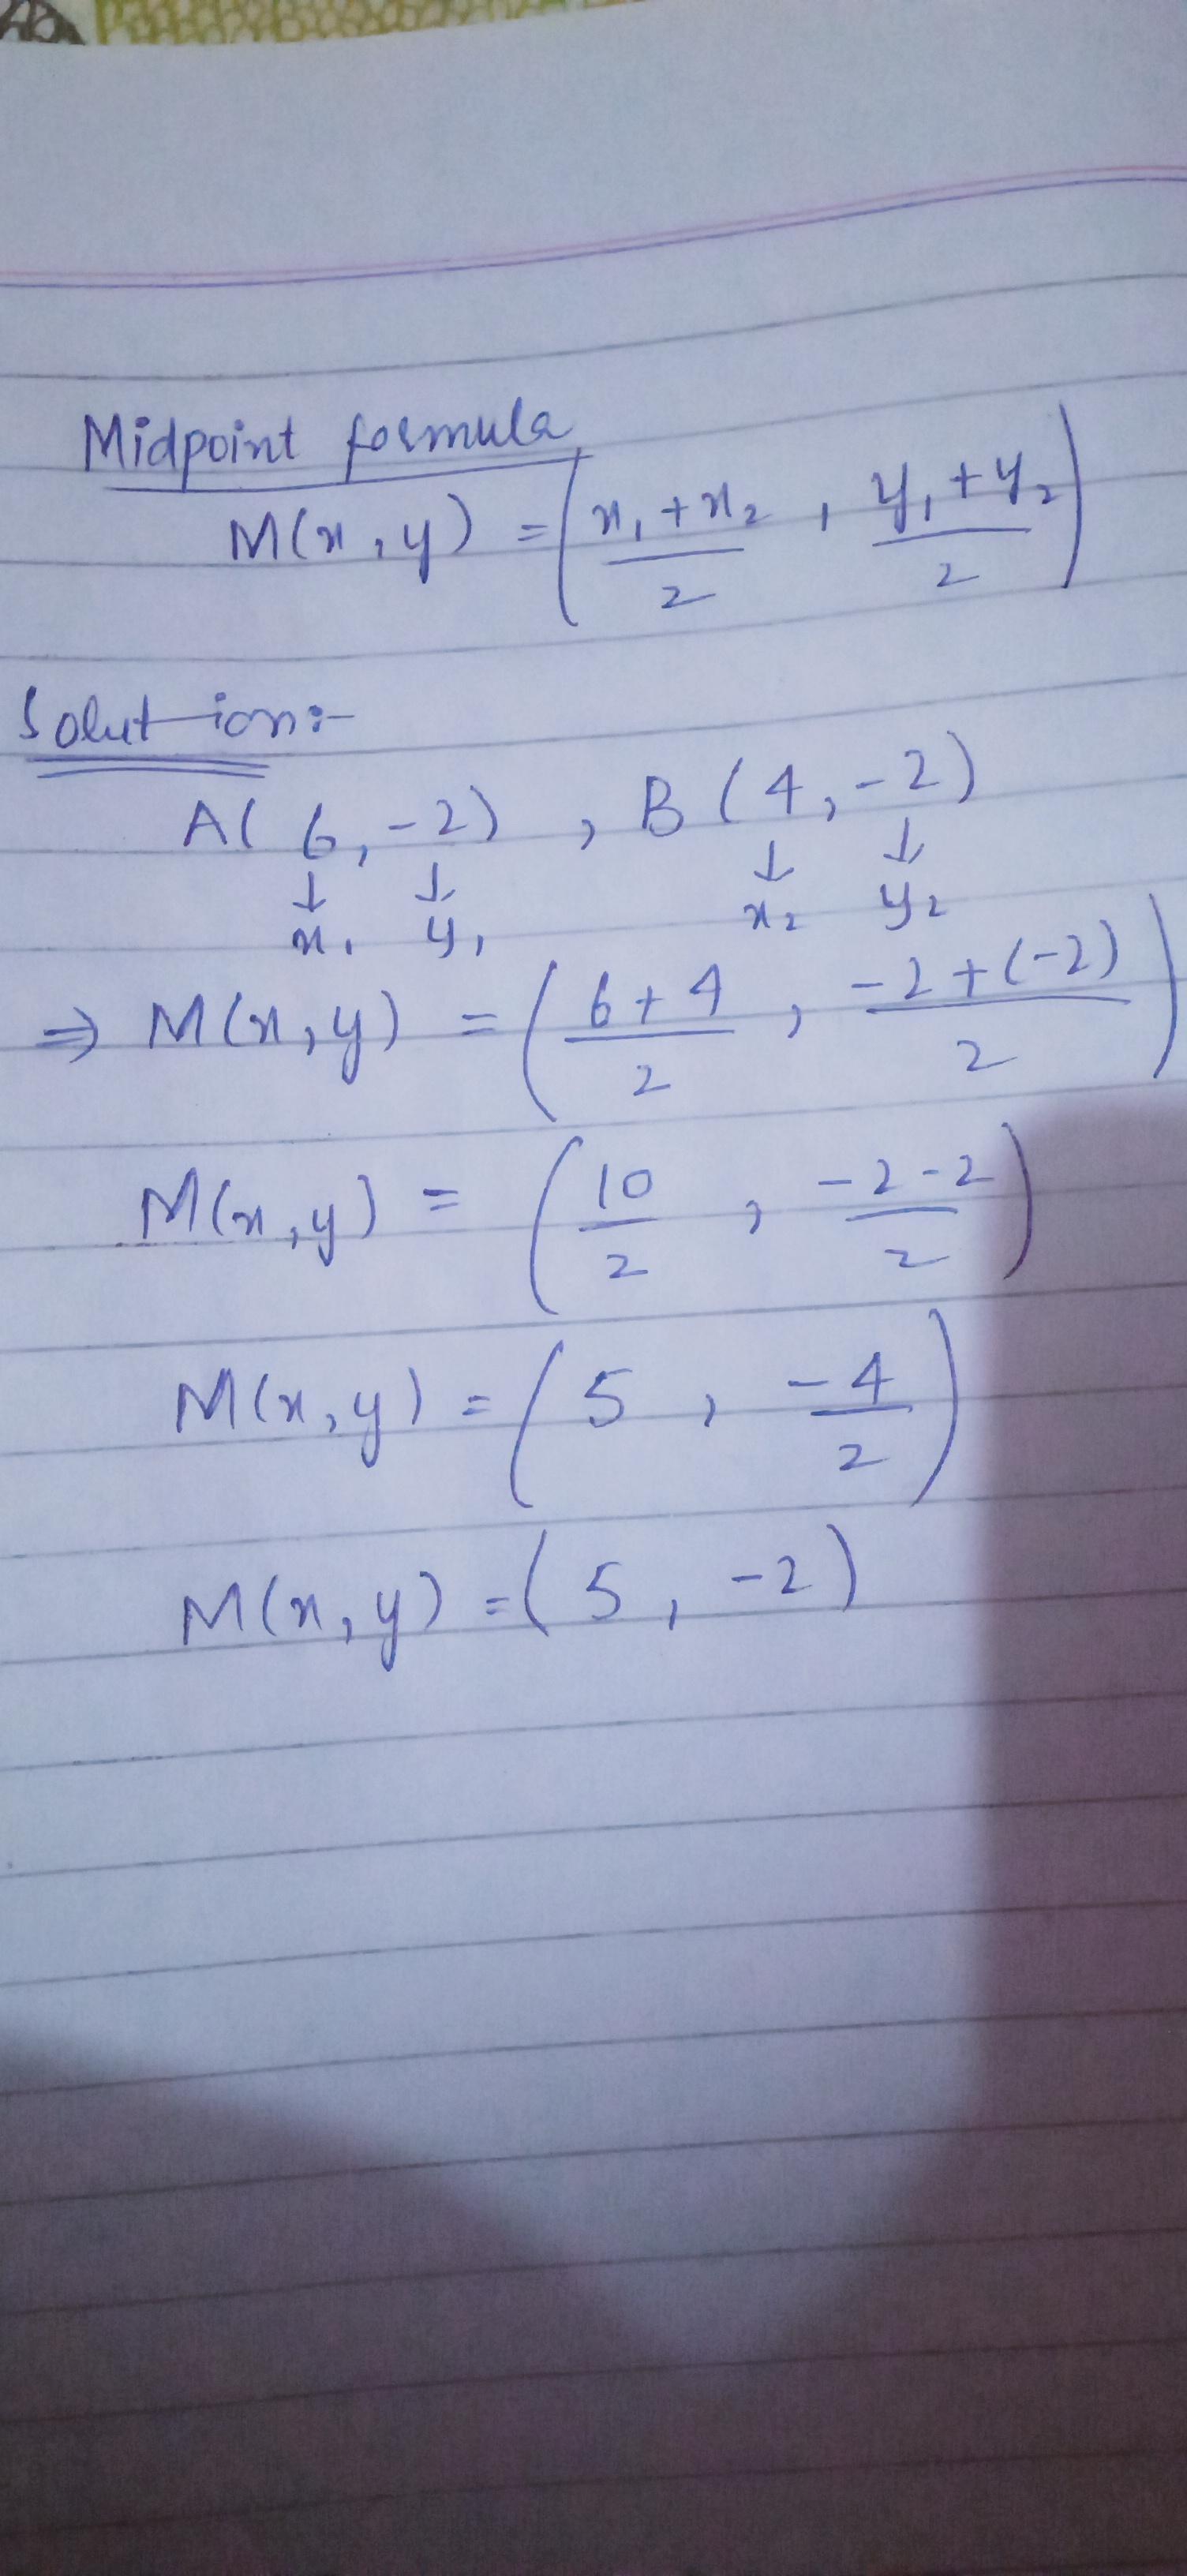 Midpoint formula
M(x, y) = (x₁ + x₂ / 2 , y₁ + y₂ / 2)
Solution:-
A( 6, -2) , B (4, -2)
↓ ↓ ↓ ↓
x₁ y₁ x₂ y₂
⇒ M(x, y) = (6 + 4 / 2 , -2 + (-2) / 2)
M(x, y) = (10 / 2 , -2 - 2 / 2)
M(x, y) = (5 , -4 / 2)
M(x, y) = (5, -2)